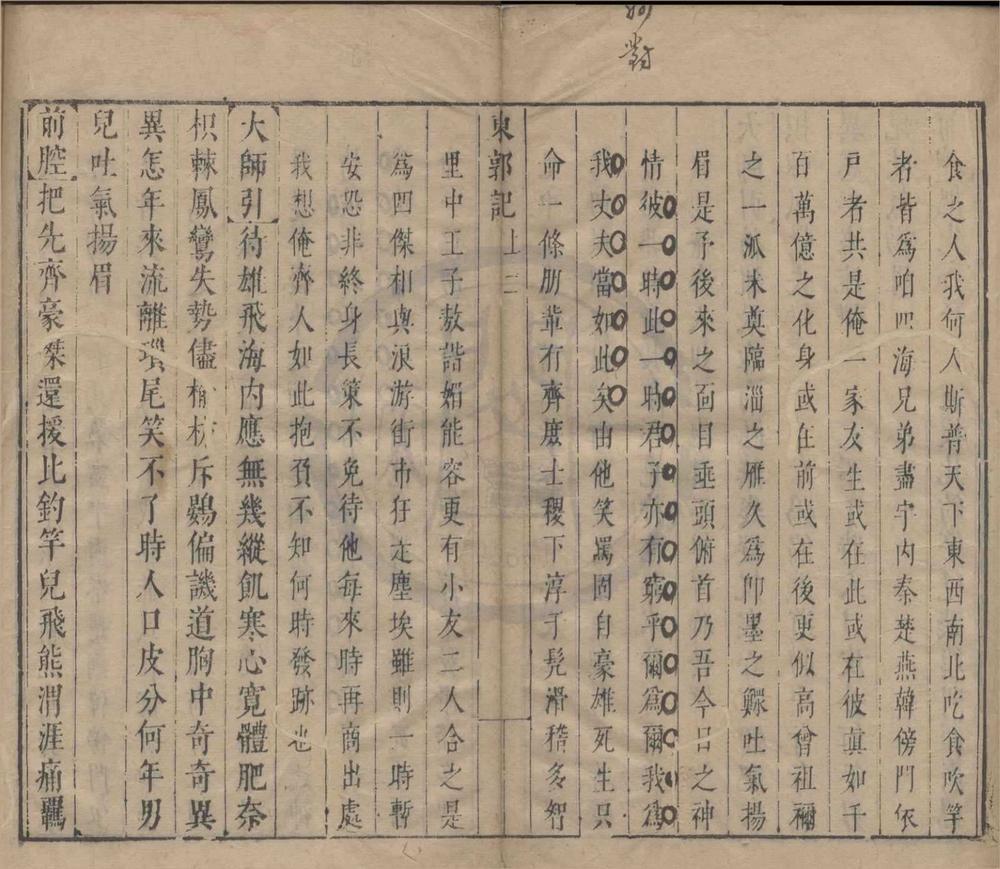 食之人我何人斯普天下東西南北吃食吹竽
者皆爲咱四海兄弟盡宇内秦楚燕韓傍門依
戶者共是俺一家友生或在此或在彼真如千
百萬億之化身或在前或在後更似高曾祖禰
之一派未奠臨淄之雁久爲卽墨之鰥吐氣揚
眉是予後來之面目垂頭俯首乃吾今日之神
情彼一時此一時君子亦有窮乎爾爲爾我爲
我丈夫當如此矣由他笑罵固自豪雄死生只
命一條朋輩有齊庶士稷下淳于髡滑稽多智
東郭記 上 二
里中王子敖諧媚能容更有小友二人合之是
爲四傑相與浪游街市狂走塵埃雖則一時暫
安恐非終身長策不免待他每來時再商出處
我想俺齊人如此抱負不知何時發跡也
大師引 待雄飛海内應無幾縱飢寒心寬體肥奈
枳棘鳳鸞失勢儘榆枋斥鷃偏譏道胸中奇奇異
異怎年來流離瑣尾笑不了時人口皮分何年男
兒吐氣揚眉
前腔 把先齊豪傑還援比釣竿兒飛熊渭涯痛羈